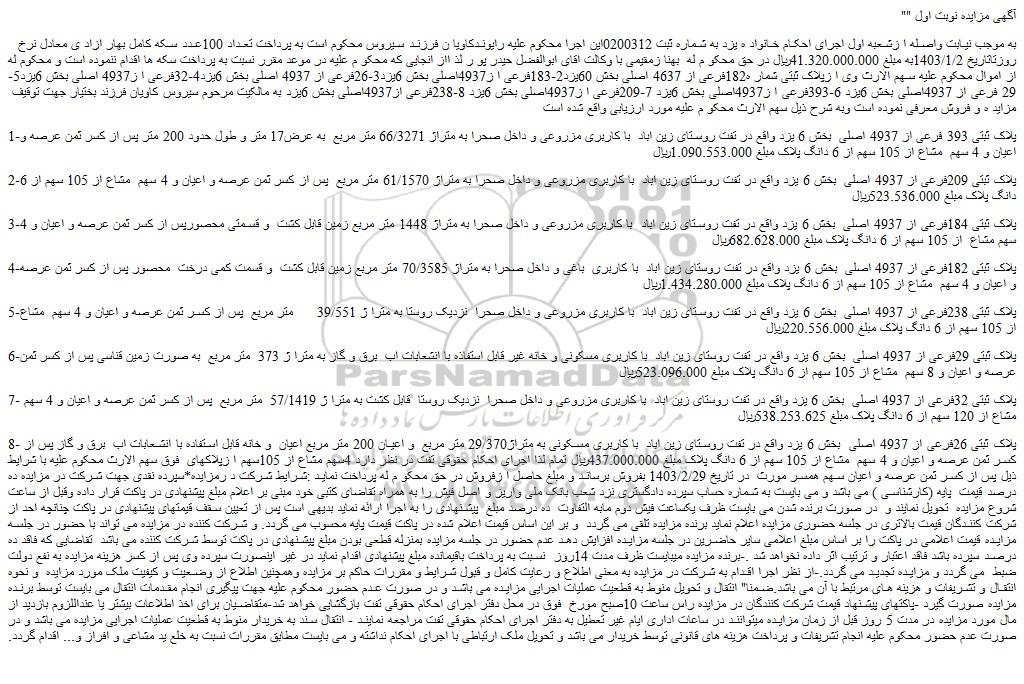 آگهی مزایده نوبت اول ""
به موجب نیابت واصله ا زشعبه اول اجرای احکام خانواد ه یزد به شماره ثبت 0200312این اجرا محکوم علیه رایوندکاویا ن فرزند سیروس محکوم است به پرداخت تعداد 100عدد سکه کامل بهار ازاد ی معادل نرخ
روزتاتاریخ 1403/1/2به مبلغ 41.320.000.000ریال در حق محکو م له بهنا زمقیمی با وکالت اقای ابوالفضل حیدر پو ر لذ ااز انجایی که محکو م علیه در موعد مقرر نسبت به پرداخت سکه ها اقدام ننموده است و محکوم له
از اموال محکوم علیه سهم الارث وی ا زپلاک ثبتی شمار ه182فرعی از 4637 اصلی بخش 60یزد2-183فرعی ا ز4937اصلی بخش 6یزد3-26فرعی از 4937 اصلی بخش 6یزد4-32فرعی ا ز4937 اصلی بخش 6یزد5-
29 فرعی از 4937اصلی بخش 6یزد 6-393فرعی ا ز4937اصلی بخش 6یزد 7-209فرعی ا ز4937اصلی بخش 6یزد 8-238فرعی از4937اصلی بخش 6یزد به مالکیت مرحوم سیروس کاویان فرزند بختیار جهت توقیف
مزاید ه و فروش معرفی نموده است وبه شرح ذیل سهم الارث محکو م علیه مورد ارزیابی واقع شده است
1-پلاک ثبتی 393 فرعی از 4937 اصلی بخش 6 یزد واقع در تفت روستای زین اباد با کاربری مزروعی و داخل صحرا به متراژ 66/3271 متر مربع به عرض17 متر و طول حدود 200 متر پس از کسر ثمن عرصه و
اعیان و 4 سهم مشاع از 105 سهم از 6 دانگ پلاک مبلغ 1.090.553.000ریال
2-پلاک ثبتی 209فرعی از 4937 اصلی بخش 6 یزد واقع در تفت روستای زین اباد با کاربری مزروعی و داخل صحرا به متراژ 61/1570 متر مربع پس از کسر ثمن عرصه و اعیان و 4 سهم مشاع از 105 سهم از 6
دانگ پلاک مبلغ 523.536.000ریال
3-پلاک ثبتی 184فرعی از 4937 اصلی بخش 6 یزد واقع در تفت روستای زین اباد با کاربری مزروعی و داخل صحرا به متراژ 1448 متر مربع زمین قابل کشت و قسمتی محصورپس از کسر ثمن عرصه و اعیان و 4
سهم مشاع از 105 سهم از 6 دانگ پلاک مبلغ 682.628.000ریال
4-پلاک ثبتی 182فرعی از 4937 اصلی بخش 6 یزد واقع در تفت روستای زین اباد با کاربری باغی و داخل صحرا به متراژ 70/3585 متر مربع زمین قابل کشت و قسمت کمی درخت محصور پس از کسر ثمن عرصه
و اعیان و 4 سهم مشاع از 105 سهم از 6 دانگ پلاک مبلغ 1.434.280.000ریال
5-پلاک ثبتی 238فرعی از 4937 اصلی بخش 6 یزد واقع در تفت روستای زین اباد با کاربری مزروعی و داخل صحرا نزدیک روستا به مترا ژ 39/551 متر مربع پس از کسر ثمن عرصه و اعیان و 4 سهم مشاع
از 105 سهم از 6 دانگ پلاک مبلغ 220.556.000ریال
6-پلاک ثبتی 29فرعی از 4937 اصلی بخش 6 یزد واقع در تفت روستای زین اباد با کاربری مسکونی و خانه غیر قابل استفاده با انشعابات اب برق و گاز به مترا ژ 373 متر مربع به صورت زمین قناسی پس از کسر ثمن
عرصه و اعیان و 8 سهم مشاع از 105 سهم از 6 دانگ پلاک مبلغ 523.096.000ریال
7- پلاک ثبتی 32فرعی از 4937 اصلی بخش 6 یزد واقع در تفت روستای زین اباد با کاربری مزروعی و داخل صحرا نزدیک روستا قابل کشت به مترا ژ 57/1419 متر مربع پس از کسر ثمن عرصه و اعیان و 4 سهم
مشاع از 120 سهم از 6 دانگ پلاک مبلغ 538.253.625ریال
8- پلاک ثبتی 26فرعی از 4937 اصلی بخش 6 یزد واقع در تفت روستای زین اباد با کاربری مسکونی به متراژ29/370 متر مربع و اعیان 200 متر مربع اعیان و خانه قابل استفاده با انشعابات اب برق و گاز پس از
کسر ثمن عرصه و اعیان و 4 سهم مشاع از 105 سهم از 6 دانگ پلاک مبلغ 437.000.000ریال تمام لذا اجرای احکام حقوقی تفت در نظر دارد 4سهم مشاع از 105سهم ا زپلاکهای فوق سهم الارث محکوم علیه با شرایط
ذیل پس از کسر ثمن عرصه و اعیان سهم همسر مورث در تاریخ 1403/2/29 بفروش برساند و مبلغ حاصل ا زفروش در حق محکو م له پرداخت نماید :شرایط شرکت د رمزایده*سپرده نقدی جهت شرکت در مزایده ده
درصد قیمت پایه (کارشناسی ) می باشد و می بایست به شماره حساب سپرده دادگستری نزد شعب بانک ملی واریز و اصل فیش را به همراه تقاضای کتبی خود مبنی بر اعلام مبلغ پیشنهادی در پاکت قرار داده وقبل از ساعت
شروع مزایده تحویل نمایند و در صورت برنده شدن می بایست ظرف یکساعت فیش دوم مابه التفاوت ده درصد مبلغ پیشنهادی را به اجرا ارائه نماید بدیهی است پس از تعیین سقف قیمتهای پیشنهادی در پاکت چنانچه احد از
شرکت کنندگان قیمت بالاتری در جلسه حضوری مزایده اعلام نماید برنده مزایده تلقی می گردد و بر این اساس قیمت اعلام شده در پاکت قیمت پایه محسوب می گردد. و شرکت کننده در مزایده می تواند با حضور در جلسه
مزایده قیمت اعلامی در پاکت را بر اساس مبلغ اعلامی سایر حاضرین در جلسه مزایده افزایش دهد عدم حضور در جلسه مزایده بمنزله قطعی بودن مبلغ پیشنهادی در پاکت توسط شرکت کننده می باشد تقاضایی که فاقد ده
درصد سپرده باشد فاقد اعتبار و ترتیب اثر داده نخواهد شد .-برنده مزایده میبایست ظرف مدت 14روز نسبت به پرداخت باقیمانده مبلغ پیشنهادی اقدام نماید در غیر اینصورت سپرده وی پس از کسر هزینه مزایده به نفع دولت
ضبط می گردد و مزایده تجدید می گردد.-از نظر اجرا اقدام به شرکت در مزایده به معنی اطلاع و رعایت کامل و قبول شرایط و مقررات حاکم بر مزایده وهمچنین اطلاع از وضعیت و کیفیت ملک مورد مزایده و نحوه
انتقال و تشریفات و هزینه های مرتبط با آن می باشد.ضمنا" انتقال و تحویل منوط به قطعیت عملیات اجرایی مزایده می باشد و در صورت عدم حضور محکوم علیه جهت پیگیری انجام مقدمات انتقال می بایست توسط برنده
مزایده صورت گیرد -پاکتهای پیشنهاد قیمت شرکت کنندگان در مزایده راس ساعت 10صبح مورخ فوق در محل دفتر اجرای احکام حقوقی تفت بازگشایی خواهد شد-متقاضیان برای اخذ اطلاعات بیشتر یا عنداللزوم بازدید از
مال مورد مزایده در مدت 5 روز قبل از زمان مزایده میتوانند در ساعات اداری ایام غیر تعطیل به دفتر اجرای احکام حقوقی تفت مراجعه نمایند - انتقال سند به خریدار منوط به قطعیت عملیات اجرایی مزایده می باشد و در
صورت عدم حضور محکوم علیه انجام تشریفات و پرداخت هزینه های قانونی توسط خریدار می باشد و تحویل ملک ارتباطی با اجرای احکام نداشته و می بایست مطابق مقررات نسبت به خلع ید مشاعی و افراز و... اقدام گردد.
ParsNamadData
مرکز فرآوری اطلاعات پارس نماد داده ها